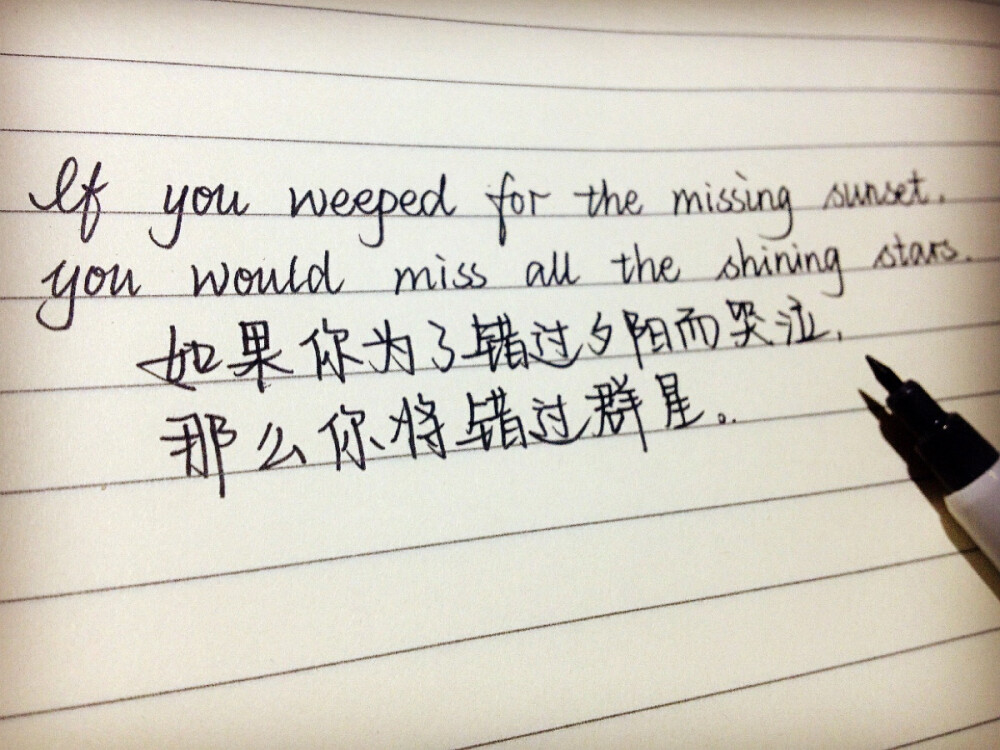 If you weeped for the missing sunset.
you would miss all the shining stars.
如果你为了错过夕阳而哭泣,
那么你将错过群星。